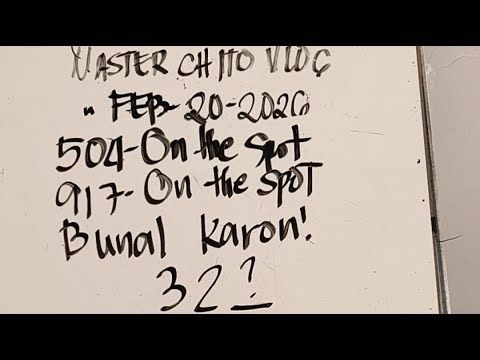 MASTER CHITO VLOG
" FEB- 20-2026
504-On the spot
917-On the SPOT
Bunal Karon!
32?